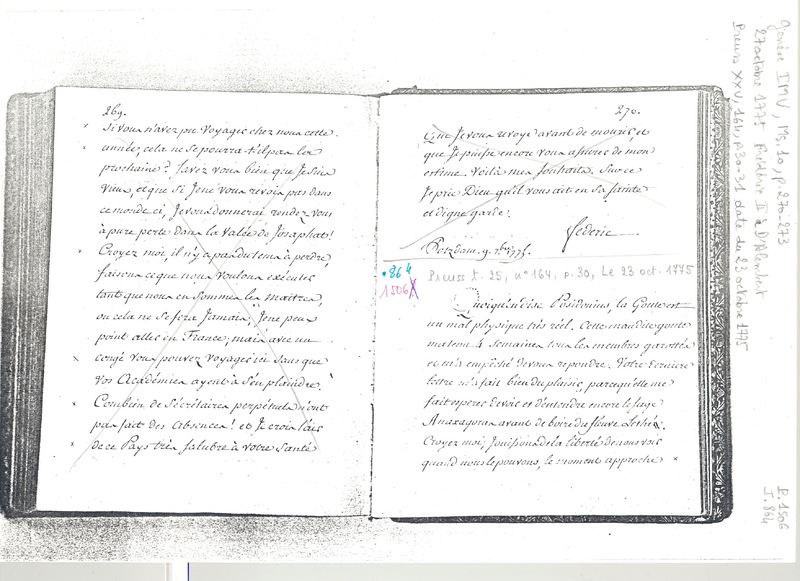 269.
Si vous n'avez pu Voyager chez nous cette
année, cela ne se pourra-t'il pas la
prochaine? Savez vous bien que Je suis
vieux, et que si Je ne vous revois pas dans
ce monde ci, Je vous donnerai rendez vous
à pure perte dans la Valée de Josaphat!
Croyez moi, il n'y a pas du tems à perdre,
faisons ce que nous voulons exécuter
tant que nous en sommes les maitres,
ou cela ne se fera Jamais, Je ne peux
point aller en France, mais avec un
congé vous pouvez Voyager ici sans que
vos Académies ayent à s'en plaindre,
Combien de Sécrétaires perpétuels n'ont
pas fait des absences! et Je crois l'air
de ce Pays très salubre à votre Santé
270.
Que Je vous revoye avant de mourir, et
que Je puisse encore vous assurer de mon
estime. Voilà mes souhaits. Sur ce
Je prie Dieu qu'il vous ait en sa sainte
et digne garde.
Federic
Potzdam 9. 7bre 1775.
•864
1506
Preuss t. 25, n° 164, p. 30, Le 23 oct. 1775
Quoiqu'en dise Posidonius, la Goute est
un mal physique très réel. Cette maudite goute
m'a tenu 4 semaines tous les membres garottés
et m'a empêché de vous repondre. Votre derniere
lettre m'a fait bien du plaisir, parcequ'elle me
fait esperer de voir et d'entendre encore le sage
Anaxagoras avant de boire du fleuve Lethé.
Croyez moi, Jouissons de la liberté de nous voir
quand nous le pouvons, le moment approche
Genève IMV, Ms. 10, p. 270-273
27 octobre 1775 Frédéric II à D'Alembert
Preuss XXV, 164, p. 30-31 daté du 23 octobre 1775
P. 1506
I. 864